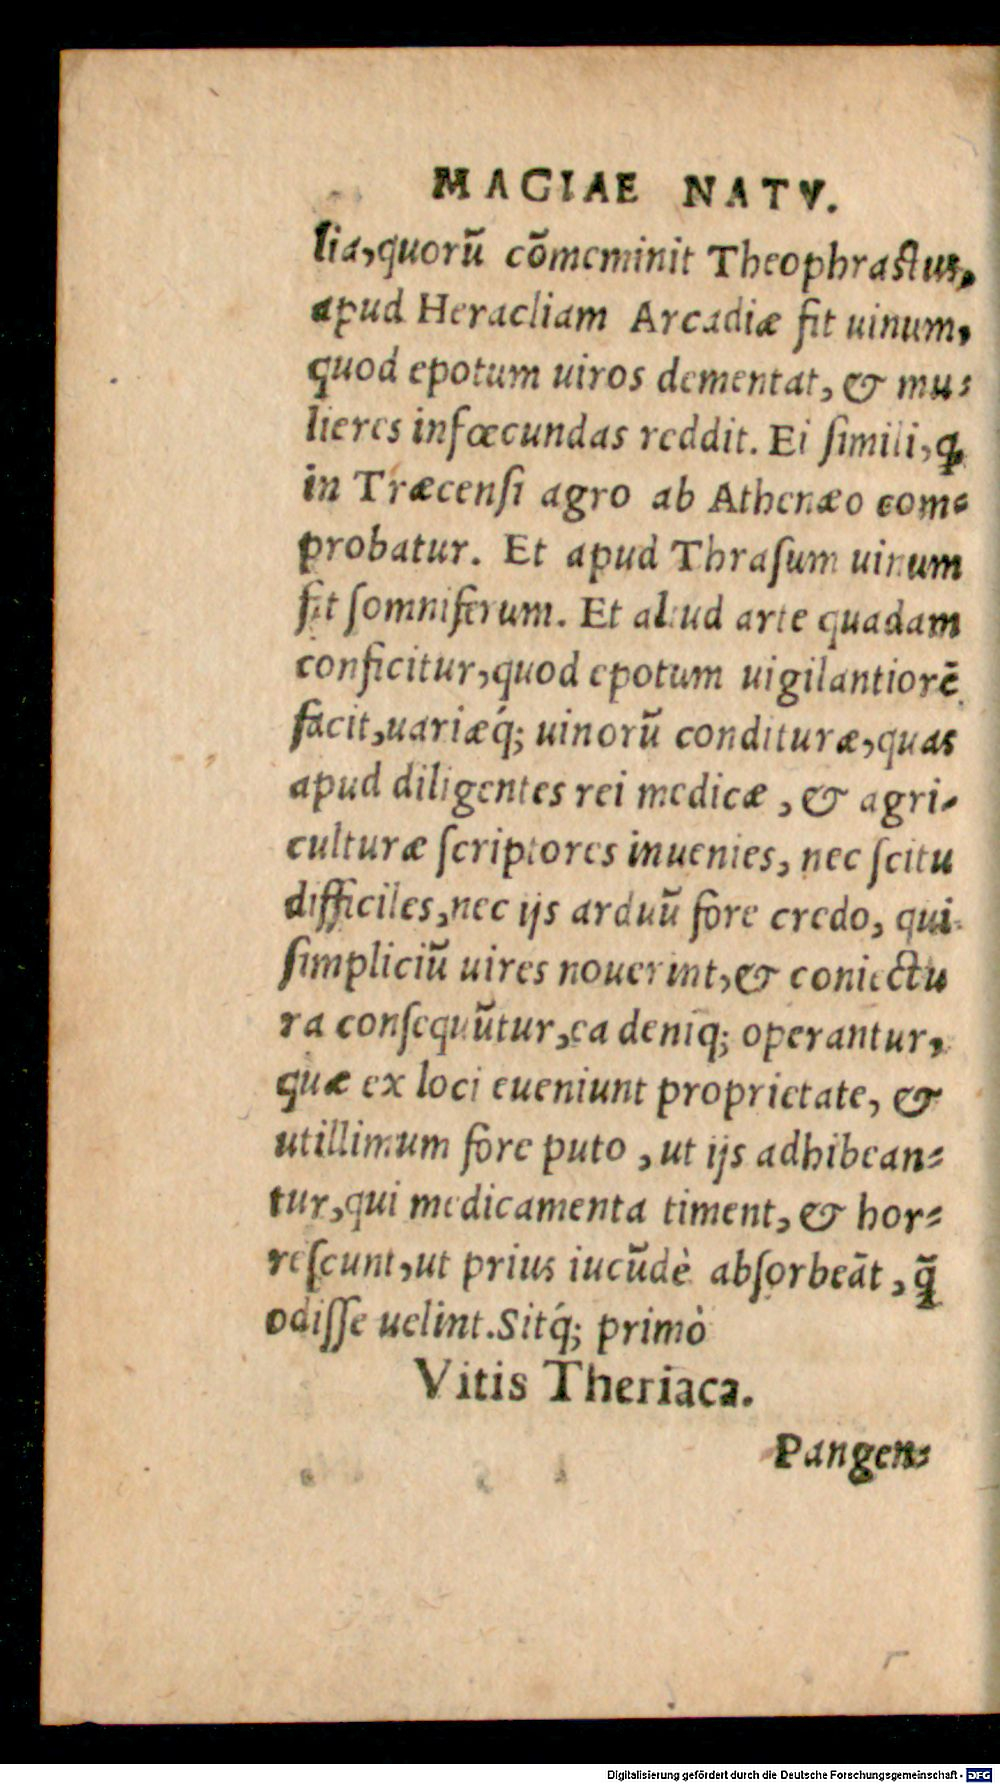 MAGIAE NATV.
lia,quorũ cõmeminit Theophrastus,
apud Heracliam Arcadiæ fit uinum,
quod epotum uiros dementat, & mu-
lieres infœcundas reddit. Ei simili, ꝙ
in Træcensi agro ab Athenæo com-
probatur. Et apud Thrasum uinum
fit somniferum. Et aliud arte quadam
conficitur,quod epotum uigilantiorẽ
facit,uariæq́; uinorũ condituræ,quas
apud diligentes rei medicæ , & agri-
culturæ scriptores inuenies, nec scitu
difficiles,nec ijs arduũ fore credo, qui
simpliciũ uires nouerint,& coniectu
ra consequũtur,ea deniq; operantur,
quæ ex loci eueniunt proprietate, &
utillimum fore puto , ut ijs adhibean-
tur,qui medicamenta timent, & hor-
rescunt,ut prius iucũdè absorbeãt , ꝗ̃
odisse uelint.Sitq́; primò
Vitis Theriaca.
Pangen-
Digitalisierung gefördert durch die Deutsche Forschungsgemeinschaft - DFG